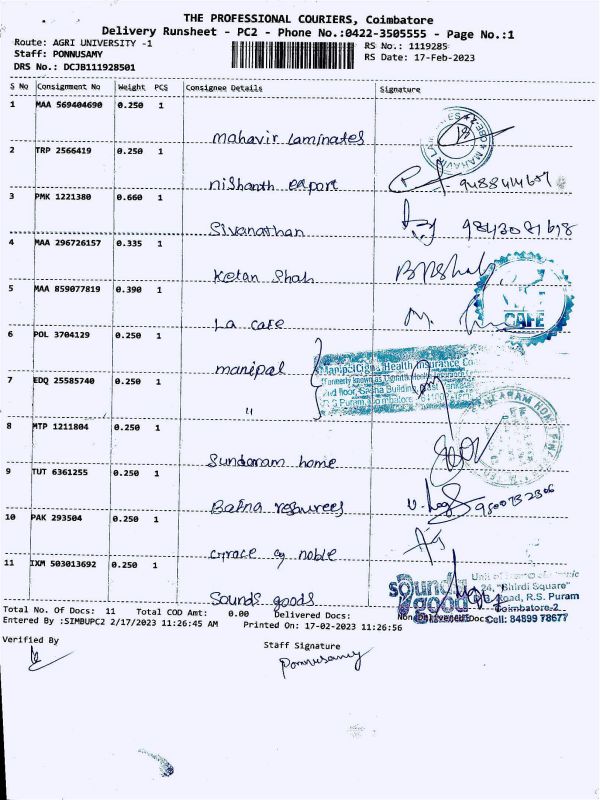 THE PROFESSIONAL COURIERS, Coimbatore
Delivery Runsheet - PC2 - Phone No.:0422-3505555 - Page No.:1
Route: AGRI UNIVERSITY -1
RS No.: 1119285
Staff: PONNUSAMY
RS Date: 17-Feb-2023
DRS No.: DCJB111928501
S No Consignment No Weight PCS Consignee Details Signature
1 MAA 569404690 0.250 1
Mahavir Laminates
2 TRP 2566419 0.250 1
Nishanth export 9488414687
3 PMK 1221380 0.660 1
Sivanathan 9843081678
4 MAA 296726157 0.335 1
Ketan Shah
5 MAA 859077819 0.390 1
La cafe
CAFE
6 POL 3704129 0.250 1
manipal
ManipalCigna Health Insurance Co
7 EDQ 25585740 0.250 1
"
8 MTP 1211804 0.250 1
Sundaram home
9 TUT 6361255 0.250 1
Bafna resources 9500732306
10 PAK 293504 0.250 1
Grace of noble
11 IXM 503013692 0.250 1
Sounds goods
sounds good
24, "Shirdi Square"
Road, R.S. Puram
Coimbatore-2
Cell: 84899 78677
Total No. Of Docs: 11 Total COD Amt: 0.00 Delivered Docs: Non Delivered Docs:
Entered By :SIMBUPC2 2/17/2023 11:26:45 AM Printed On: 17-02-2023 11:26:56
Verified By
Staff Signature
Ponnusamy